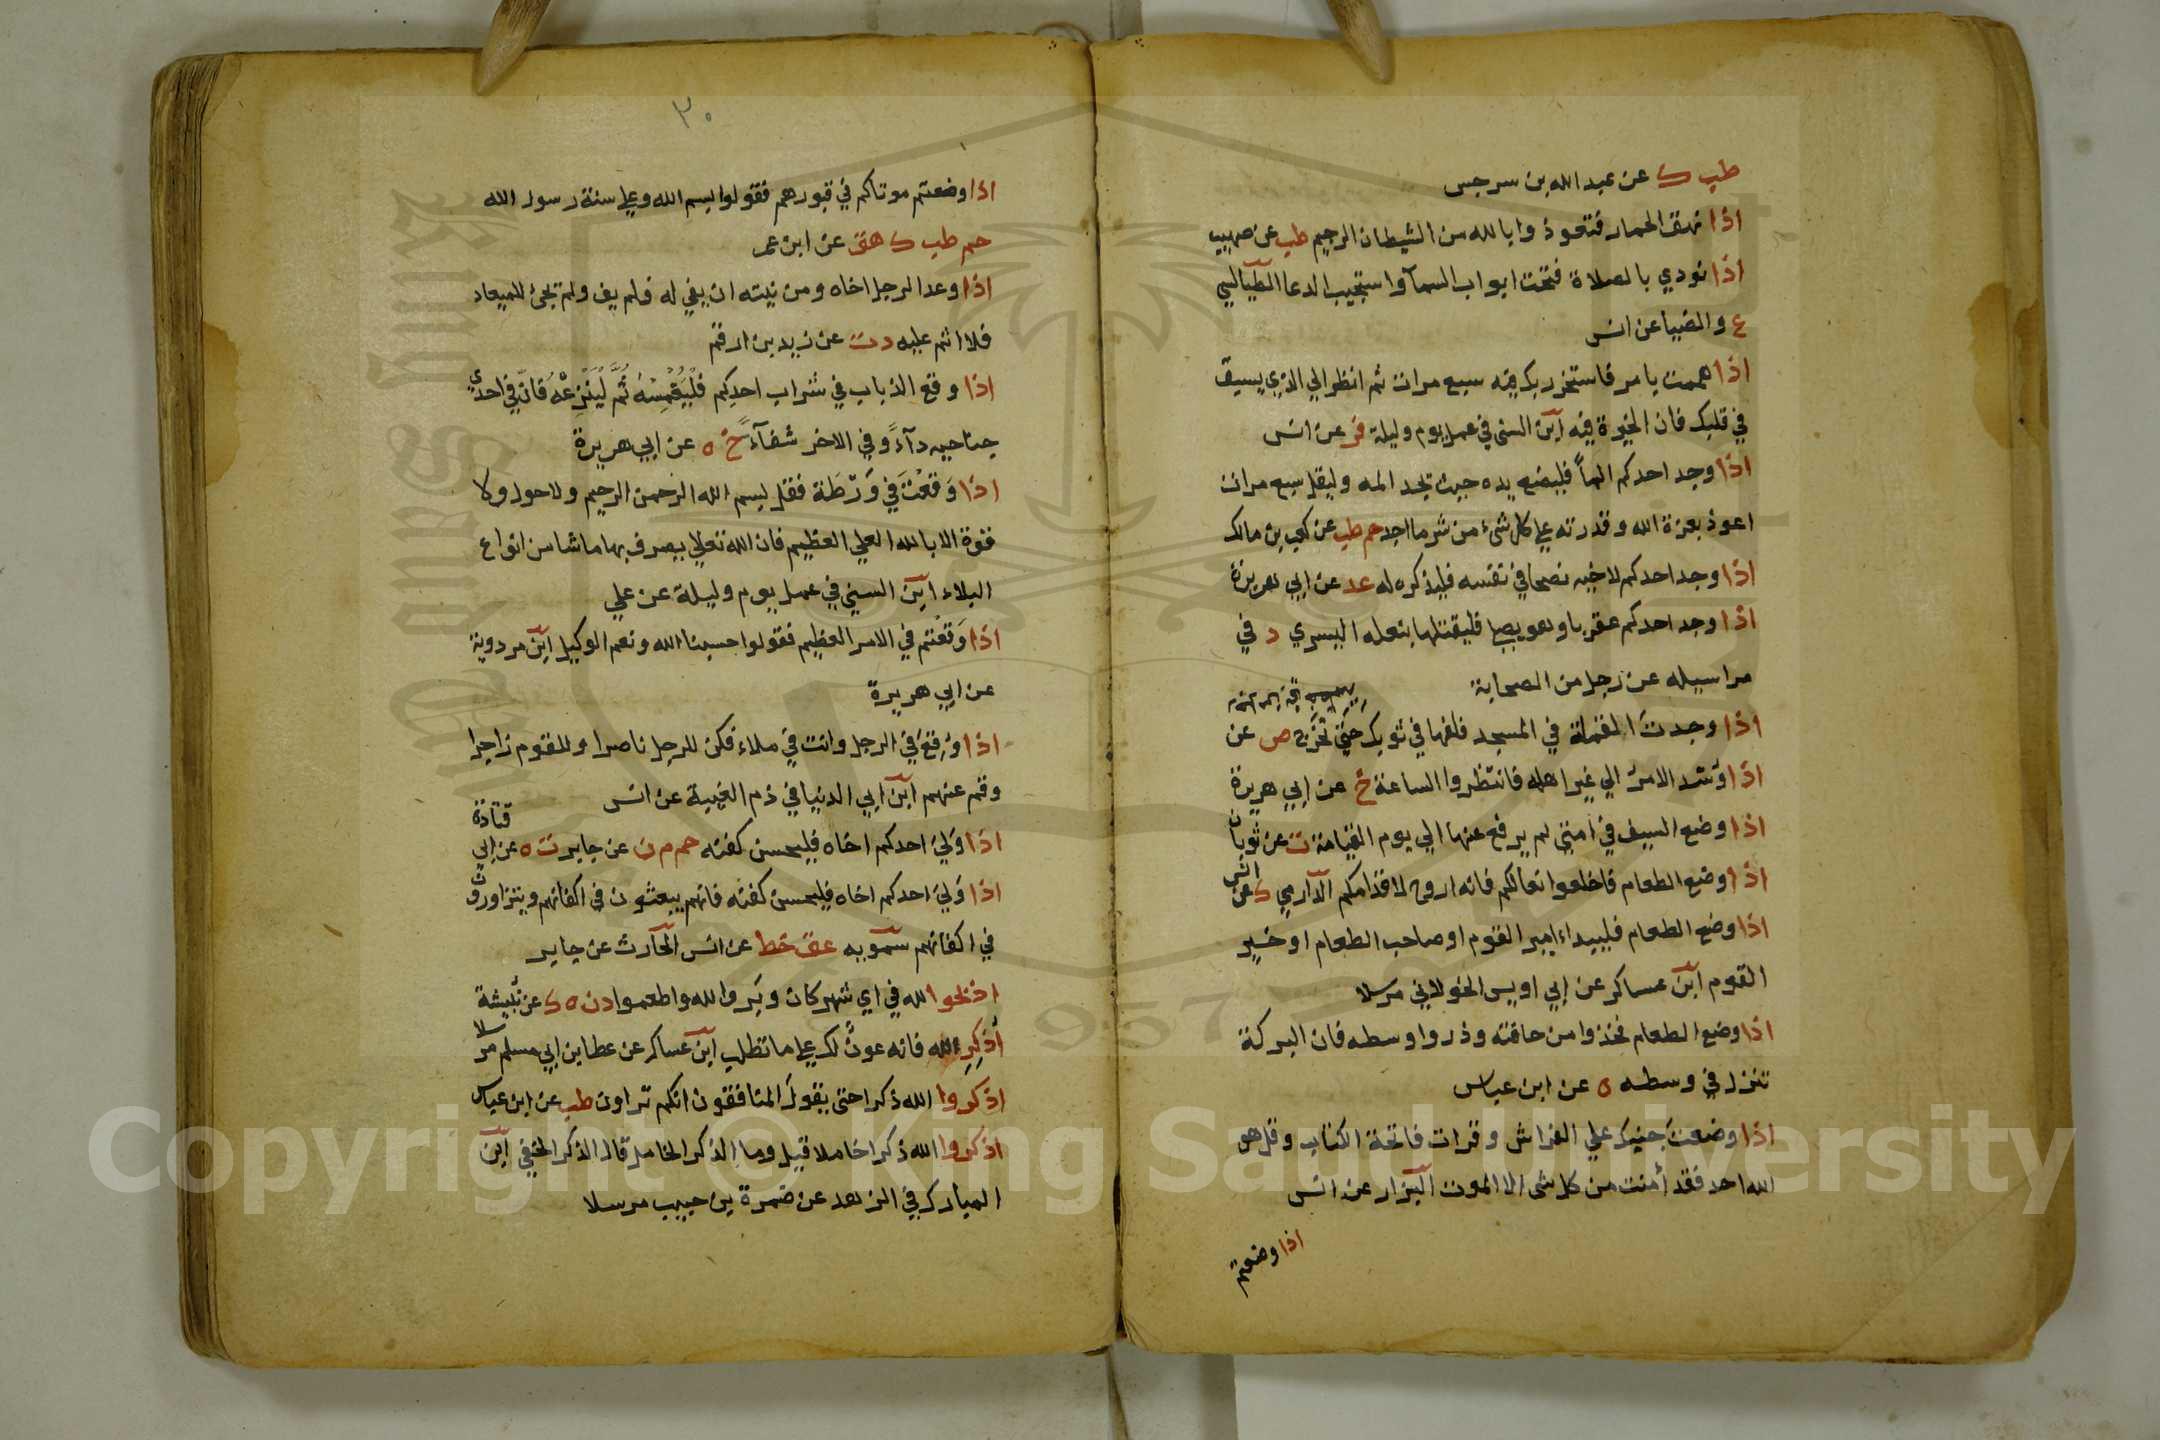 طب ك عن عبد الله بن سرجس
اذا نهق الحمار فتعوذوا بالله من الشيطان الرجيم طب عن صهيب
اذا نودي بالصلاة فتحت ابواب السما واستجيب الدعا الطيالسي
ع والضيا عن انس
اذا هممت بامر فاستخر ربك فيه سبع مرات ثم انظر الي الذي يسبق
في قلبك فان الخيرة فيه ابن السني في عمل يوم وليلة فر عن انس
اذا وجد احدكم الماً فليضع يده حيث يجد المه وليقل سبع مرات
اعوذ بعزة الله وقدرته علي كل شيء من شر ما اجد حم طب عن كعب بن مالك
اذا وجد احدكم لاخيه نصحا في نفسه فليذكره له عد عن ابي هريرة
اذا وجد احدكم عقربا وهو يصلي فليقتلها بنعله اليسري د في
مراسيله عن رجل من الصحابة
اذا وجدت القملة في المسجد فلفها في ثوبك حتي تخرج ص عن
اذا وسد الامر الي غير اهله فانتظروا الساعة خ عن ابي هريرة
اذا وضع السيف في امتي لم يرفع عنها الي يوم القيامة ت عن ثوبان
اذا وضع الطعام فاخلعوا نعالكم فانه اروح لاقدامكم الدارمي ك عن انس
اذا وضع الطعام فليبداء امير القوم او صاحب الطعام او خير
القوم ابن عساكر عن ابي اويس الخولاني مرسلا
اذا وضع الطعام فخذوا من حافته وذروا وسطه فان البركة
تنزل في وسطه ه عن ابن عباس
اذا وضعت جنبك علي الفراش وقرات فاتحة الكتاب وقل هو
الله احد فقد أمنت من كل شي الا الموت البزار عن انس
اذا وضعتم
٣٠
اذا وضعتم موتاكم في قبورهم فقولوا بسم الله وعلي سنة رسول الله
حم طب ك هق عن ابن عمر
اذا وعد الرجل اخاه ومن نيته ان يفي له فلم يف ولم يجئ للميعاد
فلا اثم عليه د ت عن زيد بن ارقم
اذا وقع الذباب في شراب احدكم فَلْيَغْمِسْهُ ثُمَّ لْيَنْزِعْهُ فانّ في احدي
جناحيه دآءً وفي الاخر شفآءً خ ه عن ابي هريرة
اذا وَقَعْتَ في وَرْطَة فقل بسم الله الرحمن الرحيم ولا حول ولا
قوة الا بالله العلي العظيم فان الله تعالي يصرف بها ما شا من انواع
البلاء ابن السني في عمل يوم وليلة عن علي
اذا وَقَعْتم في الامر العظيم فقولوا حسبنا الله ونعم الوكيل ابن مردوية
عن ابي هريرة
اذا وُقِعَ في الرجل وانت في ملاء فكن للرجل ناصرا وللقوم زاجرا
وقم عنهم ابن ابي الدنيا في ذم الغيبة عن انس
اذا وَلِيَ احدكم اخاه فليحسن كفنه حم م ن عن جابر ت ه عن ابي قتادة
اذا وَلِيَ احدكم اخاه فليحسن كفنه فانهم يبعثون في اكفانهم ويتزاورون
في اكفانهم سمويه عق خط عن انس الحارث عن جابر
اذبحوا لله في اي شهر كان وبَروا لله واطعموا د ن ه ك عن نُبيشة
أذكِرِ الله فانه عونٌ لك علي ما تطلب ابن عساكر عن عطا بن ابي مسلم مرسلا
اذكروا الله ذكرا حتى يقولَ المنافقون انكم تراون طب عن ابن عباس
اذكروا الله ذكرا خاملا قيل وما الذكر الخامل قال الذكر الخفي ابن
المبارك في الزهد عن ضمرة بن حبيب مرسلا
Copyright © King Saud University